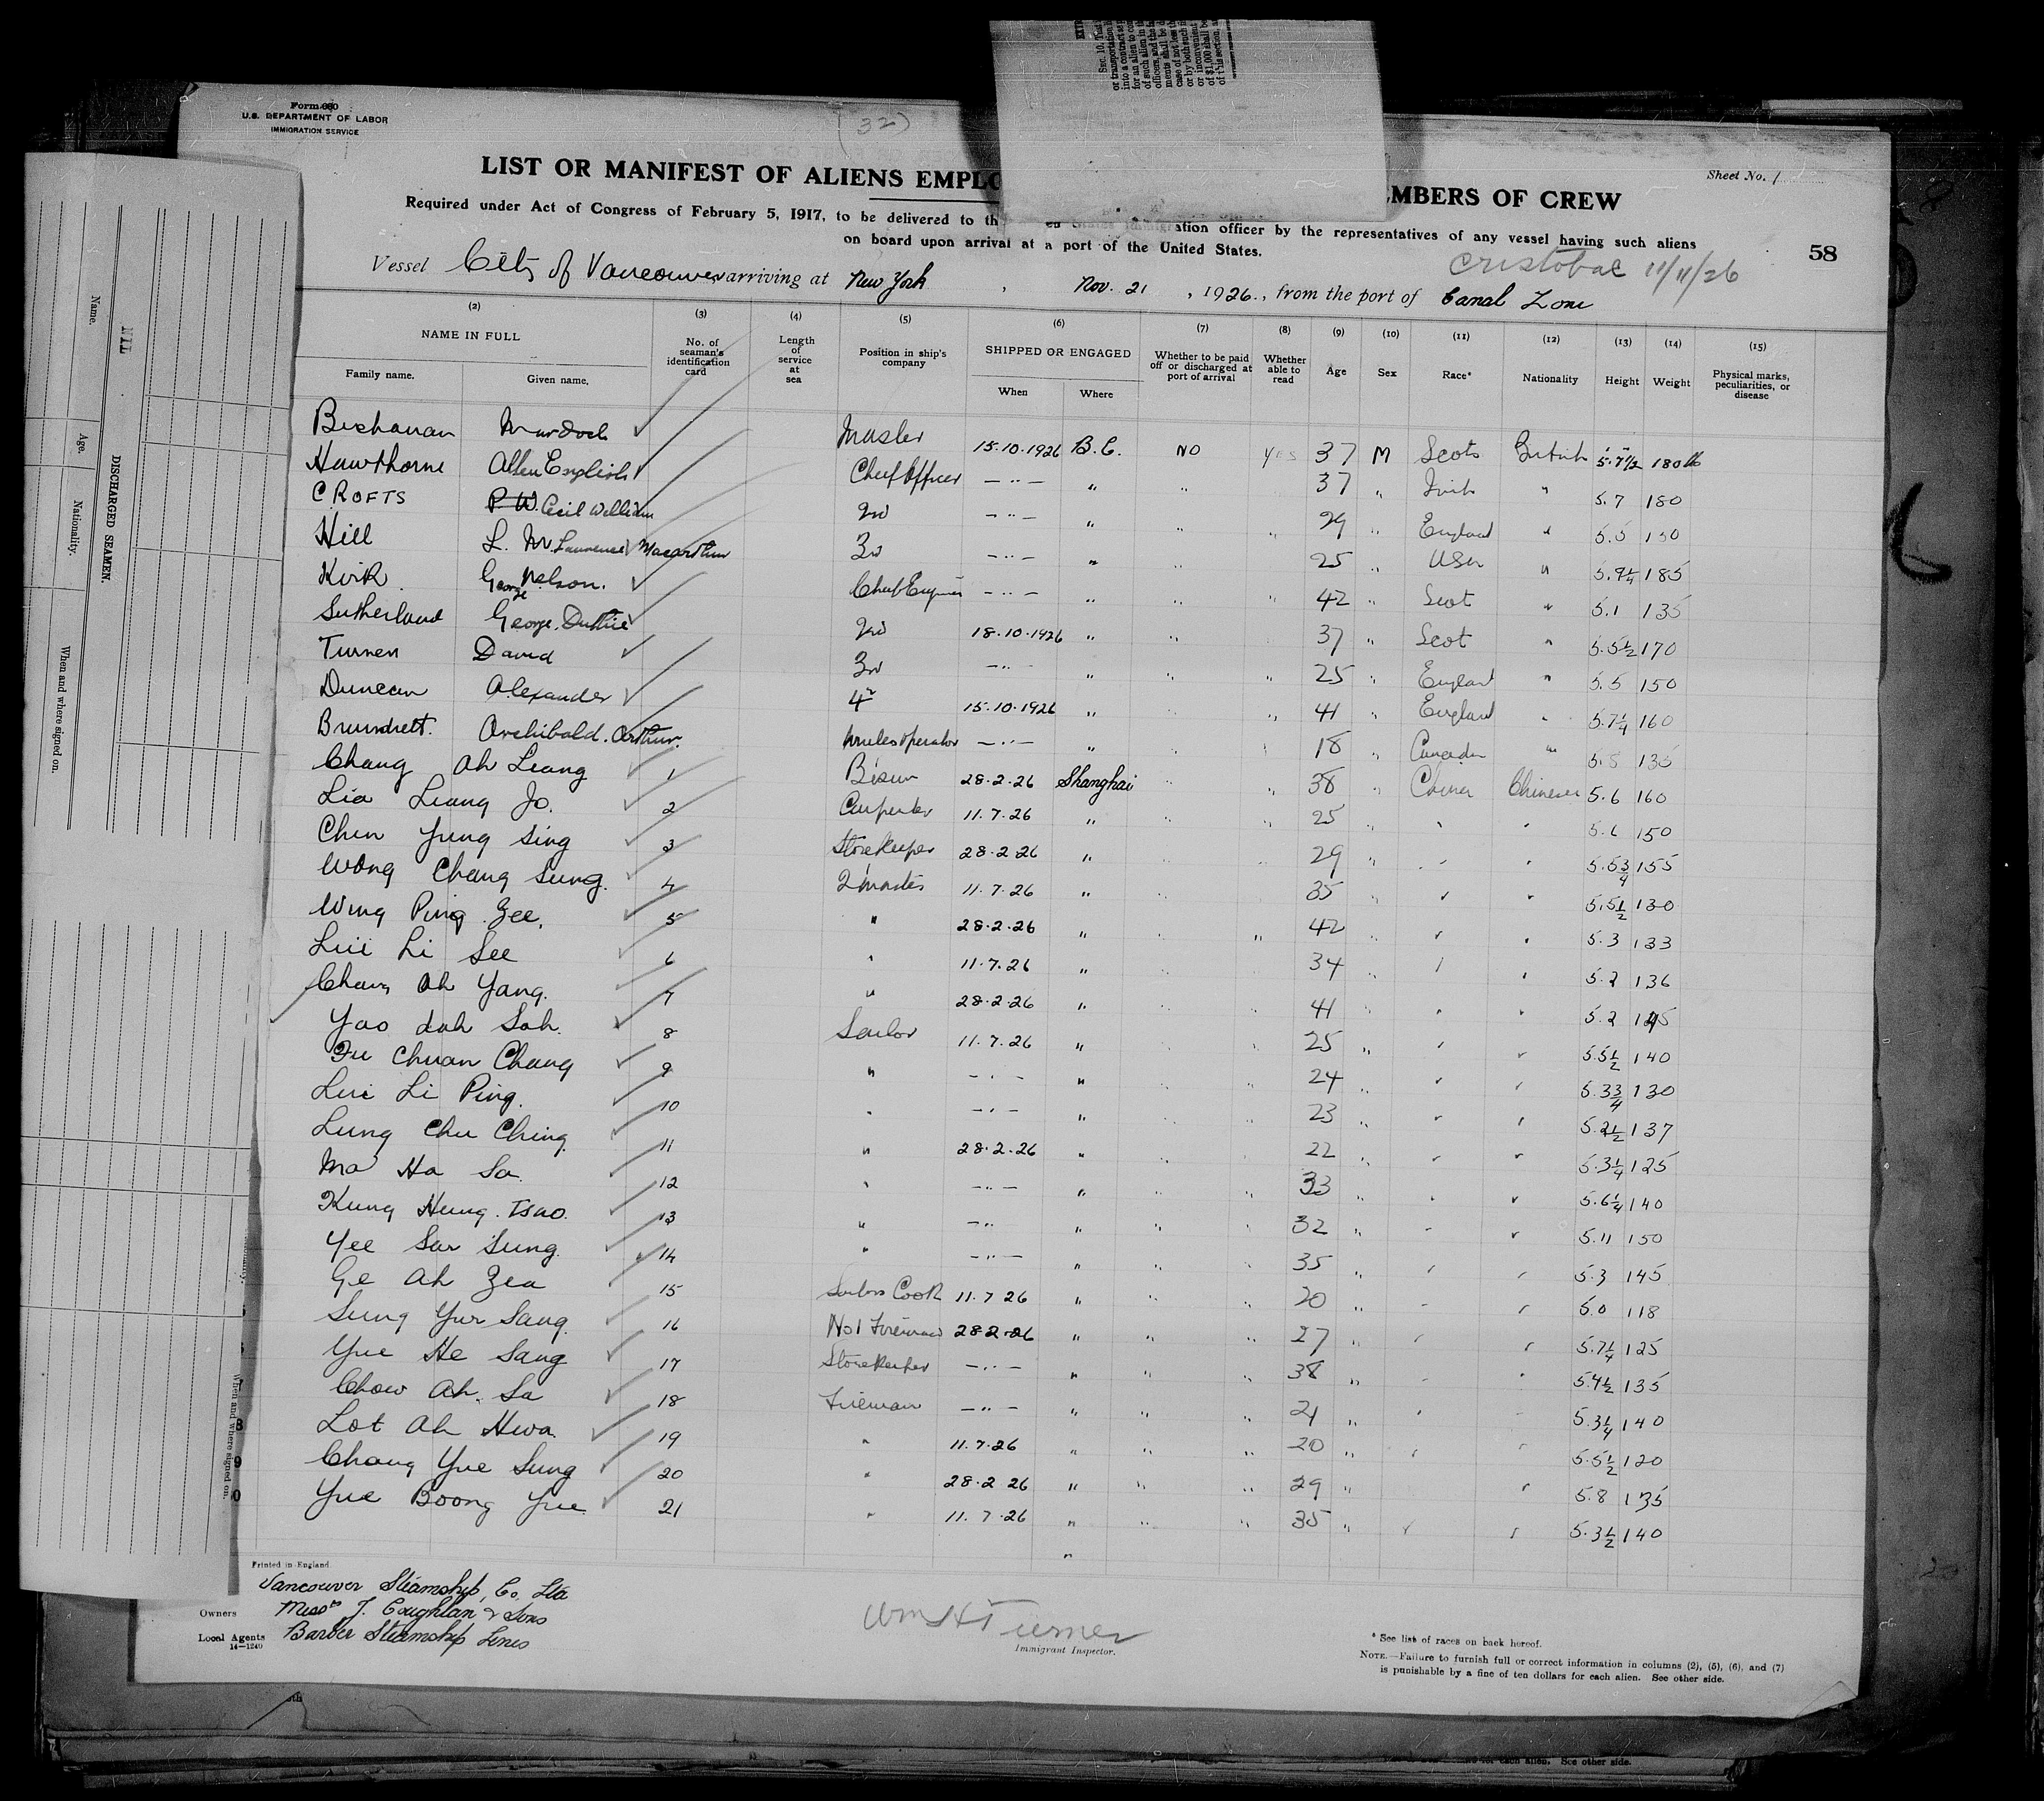 Form 680
U.S. DEPARTMENT OF LABOR
IMMIGRATION SERVICE
(32)
LIST OR MANIFEST OF ALIENS EMPLO
EMBERS OF CREW
Sheet No. 1
Required under Act of Congress of February 5, 1917, to be delivered to th ation officer by the representatives of any vessel having such aliens
on board upon arrival at a port of the United States.
58
Cristobal 11/11/26
Vessel City of Vancouver arriving at New York, Nov. 21, 1926, from the port of Canal Zone
(2) (3) (4) (5) (6) (7) (8) (9) (10) (11) (12) (13) (14) (15)
NAME IN FULL No. of seaman's identification card Length of service at sea Position in ship's company SHIPPED OR ENGAGED Whether to be paid off or discharged at port of arrival Whether able to read Age Sex Race* Nationality Height Weight Physical marks, peculiarities, or disease
Family name. Given name. When Where
Buchanan Murdoch Master 15.10.1926 B.C. NO yes 37 M Scots British 5.7 1/2 180 lb
Hawthorne Allen English Chief Officer — " — " " 37 " Irish " 5.7 180
CROFTS P.W. Cecil William 2nd — " — " " " 29 " England " 5.5 150
Hill L. M. Laurence Macarthur 3rd — " — " " 25 " " 5.9 1/4 185
Kirk George Nelson. Chief Engineer — " — " " " 42 " Scot " 5.1 135
Sutherland George Duthie 2nd 18.10.1926 " " 37 " Scot " 5.5 1/2 170
Turner David 3rd — " — " " " 25 " England " 5.5 150
Duncan Alexander 4th 15.10.1926 " " " 41 " England " 5.7 1/4 160
Brundrett. Archibald. Arthur. Wireless operator — " — " " 18 " Canadian " 5.8 135
Chang Ah Leang 1 28.2.26 Shanghai " " 38 " China Chinese 5.6 160
Lia Leang Jo. 2 Carpenter 11.7.26 " " " 25 " " " 150
Chen Yung Sing 3 Storekeeper 28.2.26 " 29 " " " 5.5 3/4 155
Wong Chang Sung. 4 11.7.26 " " 35 " " " 5.5 1/2 130
Wung Ping Zee. 5 " 28.2.26 " " " 42 " " " 5.3 133
Lui Li See 6 " 11.7.26 " " 34 " " " 5.2 136
Chang Ah Yang. 7 " 28.2.26 " " 41 " " " 5.2 145
Yao dah Sah. 8 Sailor 11.7.26 " " " 25 " " " 5.5 1/2 140
Fu Chuan Chang 9 " — " — " " " 24 " " " 5.3 3/4 130
Lui Li Ping. 10 " — " — " " 23 " " " 5.2 1/2 137
Lung Chu Ching 11 " 28.2.26 " " 22 " " " 5.3 1/4 125
Ma Ha Sa. 12 " — " — " " " 33 " " " 5.6 1/4 140
Kung Hung. Tsao. 13 " — " " " " 32 " " " 5.11 150
Yee Sar Sung. 14 " — " — " " " 35 " " " 5.3 145
Ge Ah Zea 15 Sailors Cook 11.7.26 " " " 20 " " " 5.0 118
Sung Yur Sang. 16 No 1 Fireman 28.2.26 " " " 27 " " " 5.7 1/4 125
Yue He Sang 17 Storekeeper — " — " " " 38 " " " 5.4 1/2 135
Chow Ah. Sa 18 Fireman — " — " " " 21 " " " 5.3 1/4 140
Lot Ah Hwa. 19 " 11.7.26 " " " 20 " " " 5.5 1/2 120
Chang Yue Sung 20 " 28.2.26 " " " 29 " " 5.8 135
Yue Boong Yue. 21 " 11.7.26 " " " 35 " " " 5.3 1/2 140
Printed in England.
Vancouver Steamship Co. Ltd
Owners Messrs J. Coughlan & Sons
Local Agents Barber Steamship Lines
14—1240
Wm H Turner
Immigrant Inspector.
* See list of races on back hereof.
NOTE.—Failure to furnish full or correct information in columns (2), (5), (6), and (7)
is punishable by a fine of ten dollars for each alien. See other side.
NIL
DISCHARGED SEAMEN.
Name. Age. Nationality. When and where signed on.
When and where signed on.
each alien. See other side.